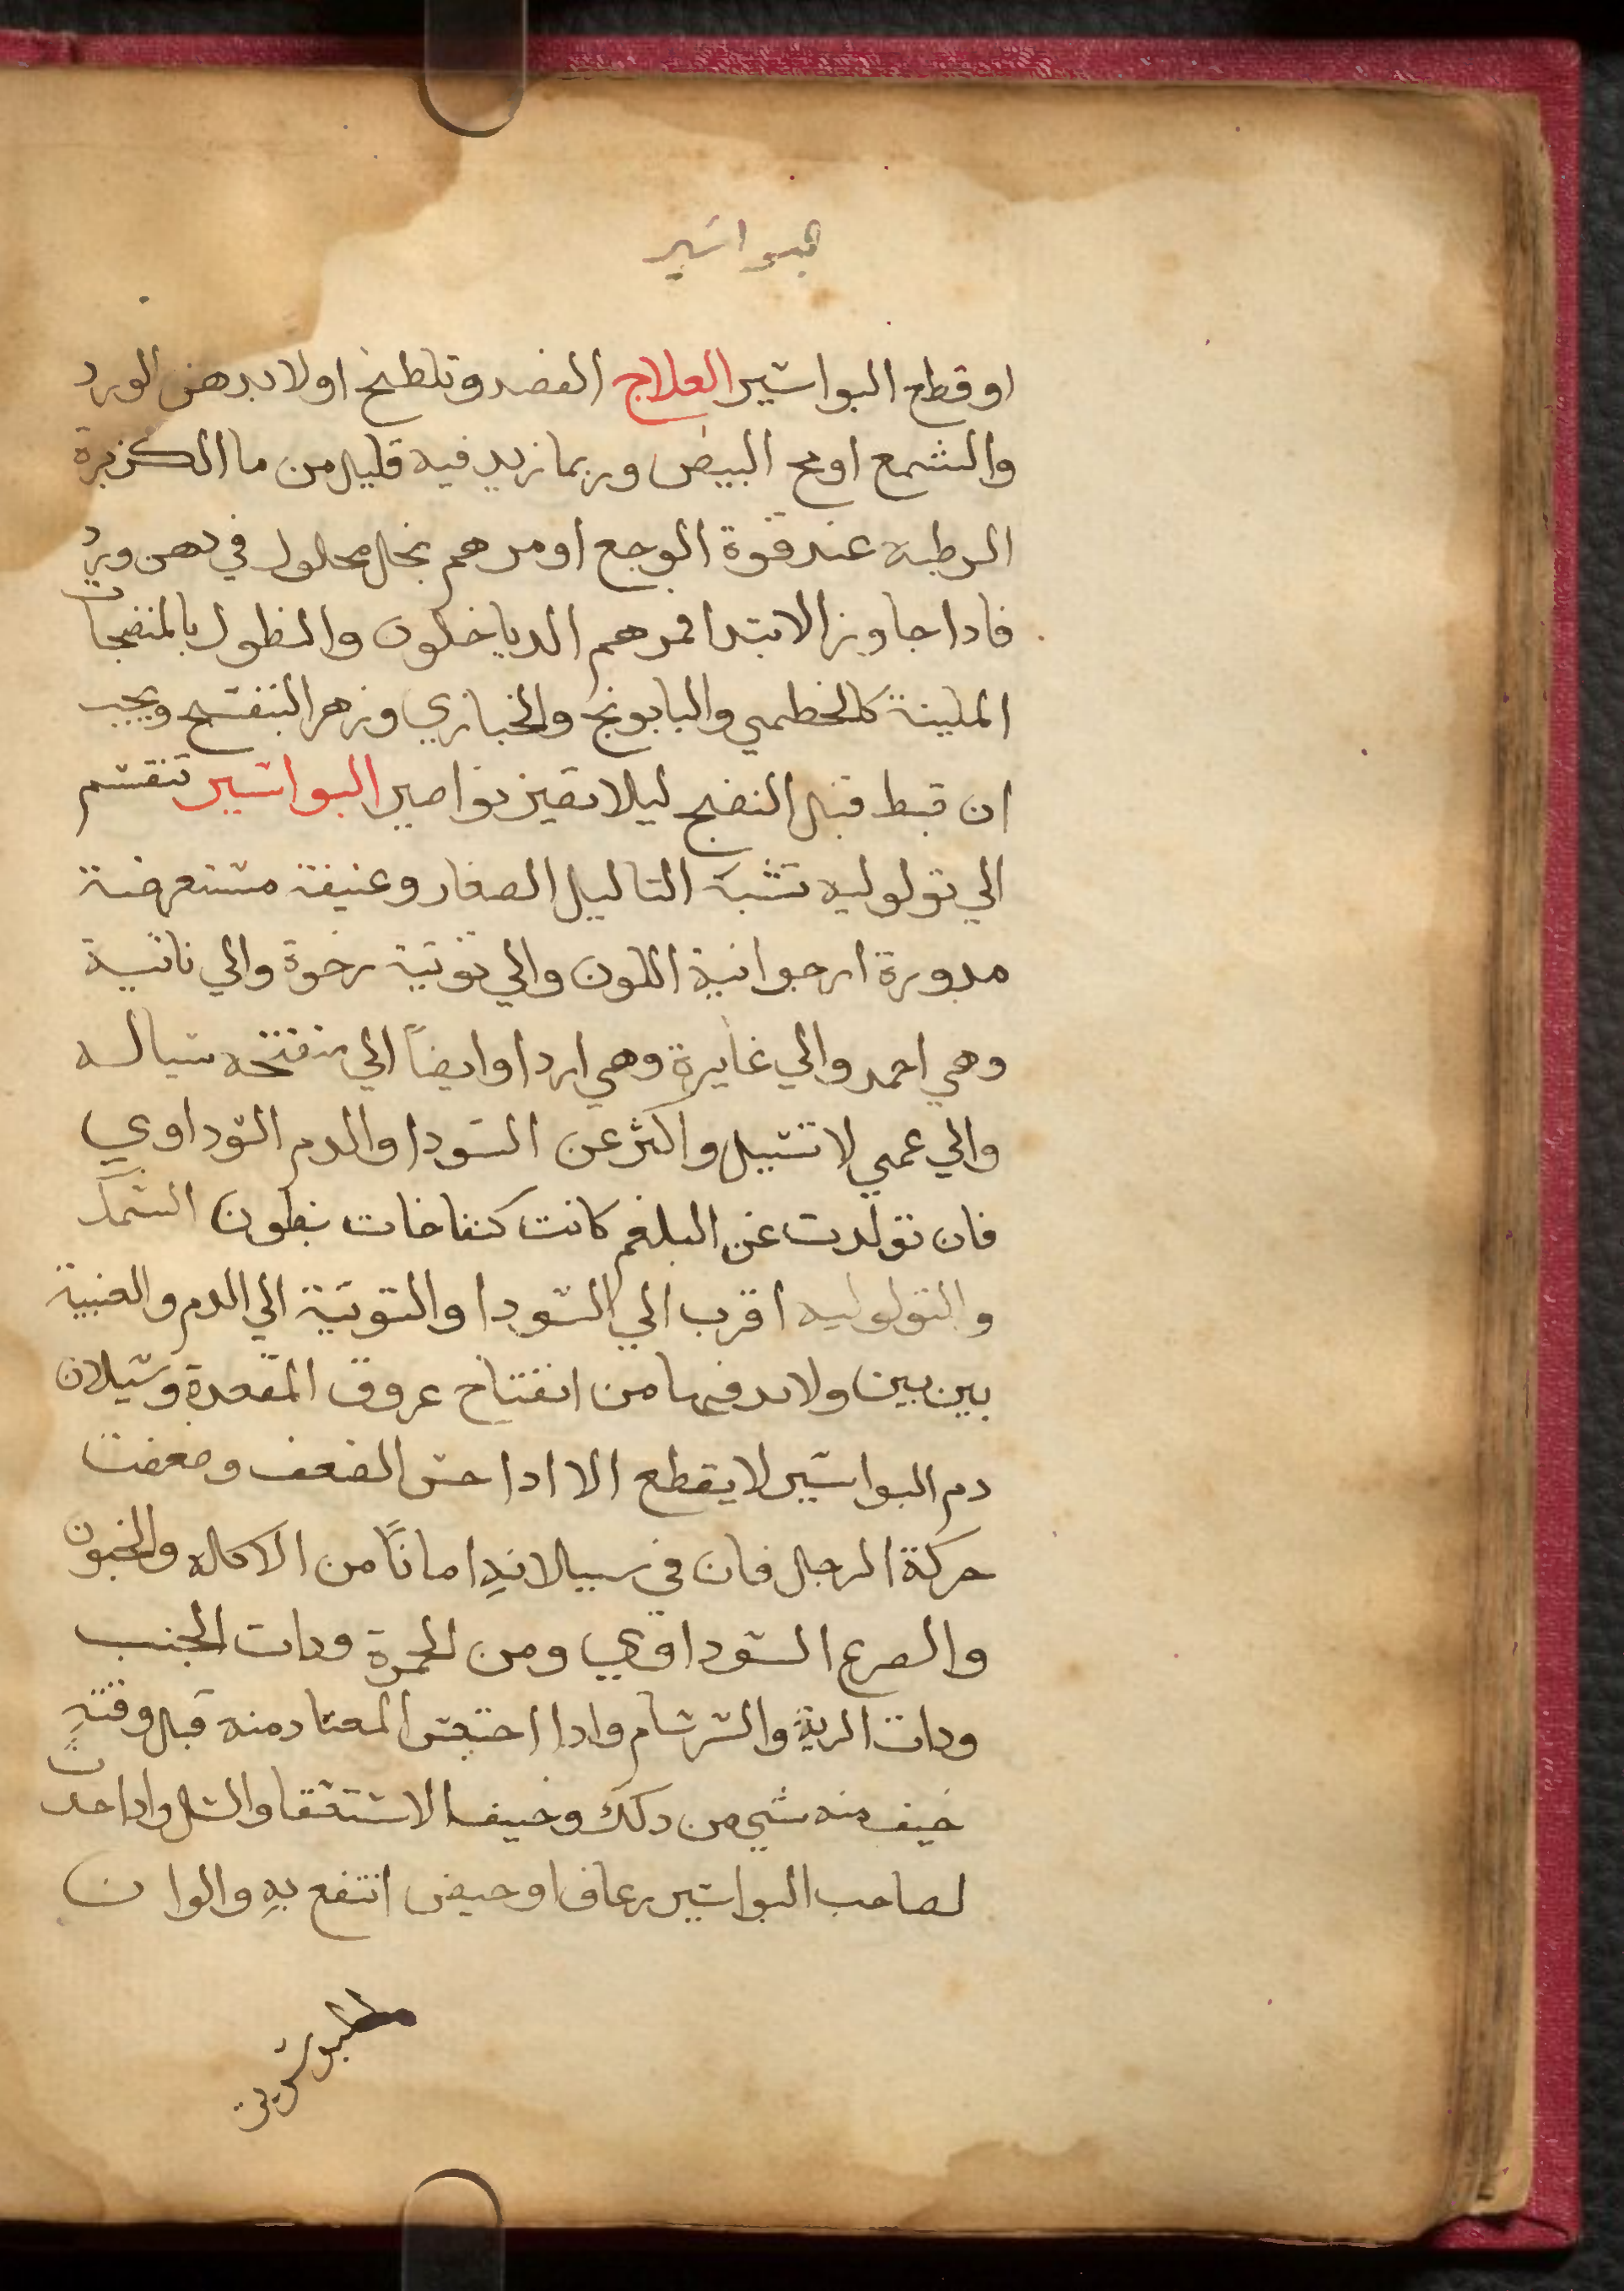 بواسير
او قطع البواسير العلاج الفصد وتلطخ اولا بدهن الورد
والشمع او مح البيض وربما زيد فيه قليل من ما الكزبرة
الرطبه عند قوة الوجع او مرهم بخل محلول في دهن ورد
فادا جاوز الابتدا فمرهم الدياخلون والنطول بالمنضجات
الملينة كالخطمي والبابونج والخبازي وزهر البنفسج ويجب
ان تبط قبل النضج ليلا تصير نواصير البواسير تنقسم
الي تولوليه تشبه التاليل الصغار وعنيفة مستعرضة
مدورة ارجوانية اللون والي توتية رخوة والي ناتية
وهي احمد والي غايرة وهي اردا وايضاً الي منفتحه سياله
والي عمي لا تسيل واكثر عن السودا والدم السوداوي
فان تولدت عن البلغم كانت كنفاخات بطون السمك
والتولوليه اقرب الي السودا والتوتية الي الدم والعنبية
بين بين ولا بد فيها من انفتاح عروق المقعدة وسيلان
دم البواسير لا يقطع الا ادا حس الضعف وضعفت
حركة الرجل فان في سيلانه اماناً من الاكاله والجنون
والصرع السوداوي ومن الحمرة ودات الجنب
ودات الرية والسرسام وادا احتبس المعتاد منه قبل وقته
خيف منه شي من دلك وخيف الاستسقا والسل وادا حدث
لصاحب البواسير رعاف او حيض انتفع به والوان